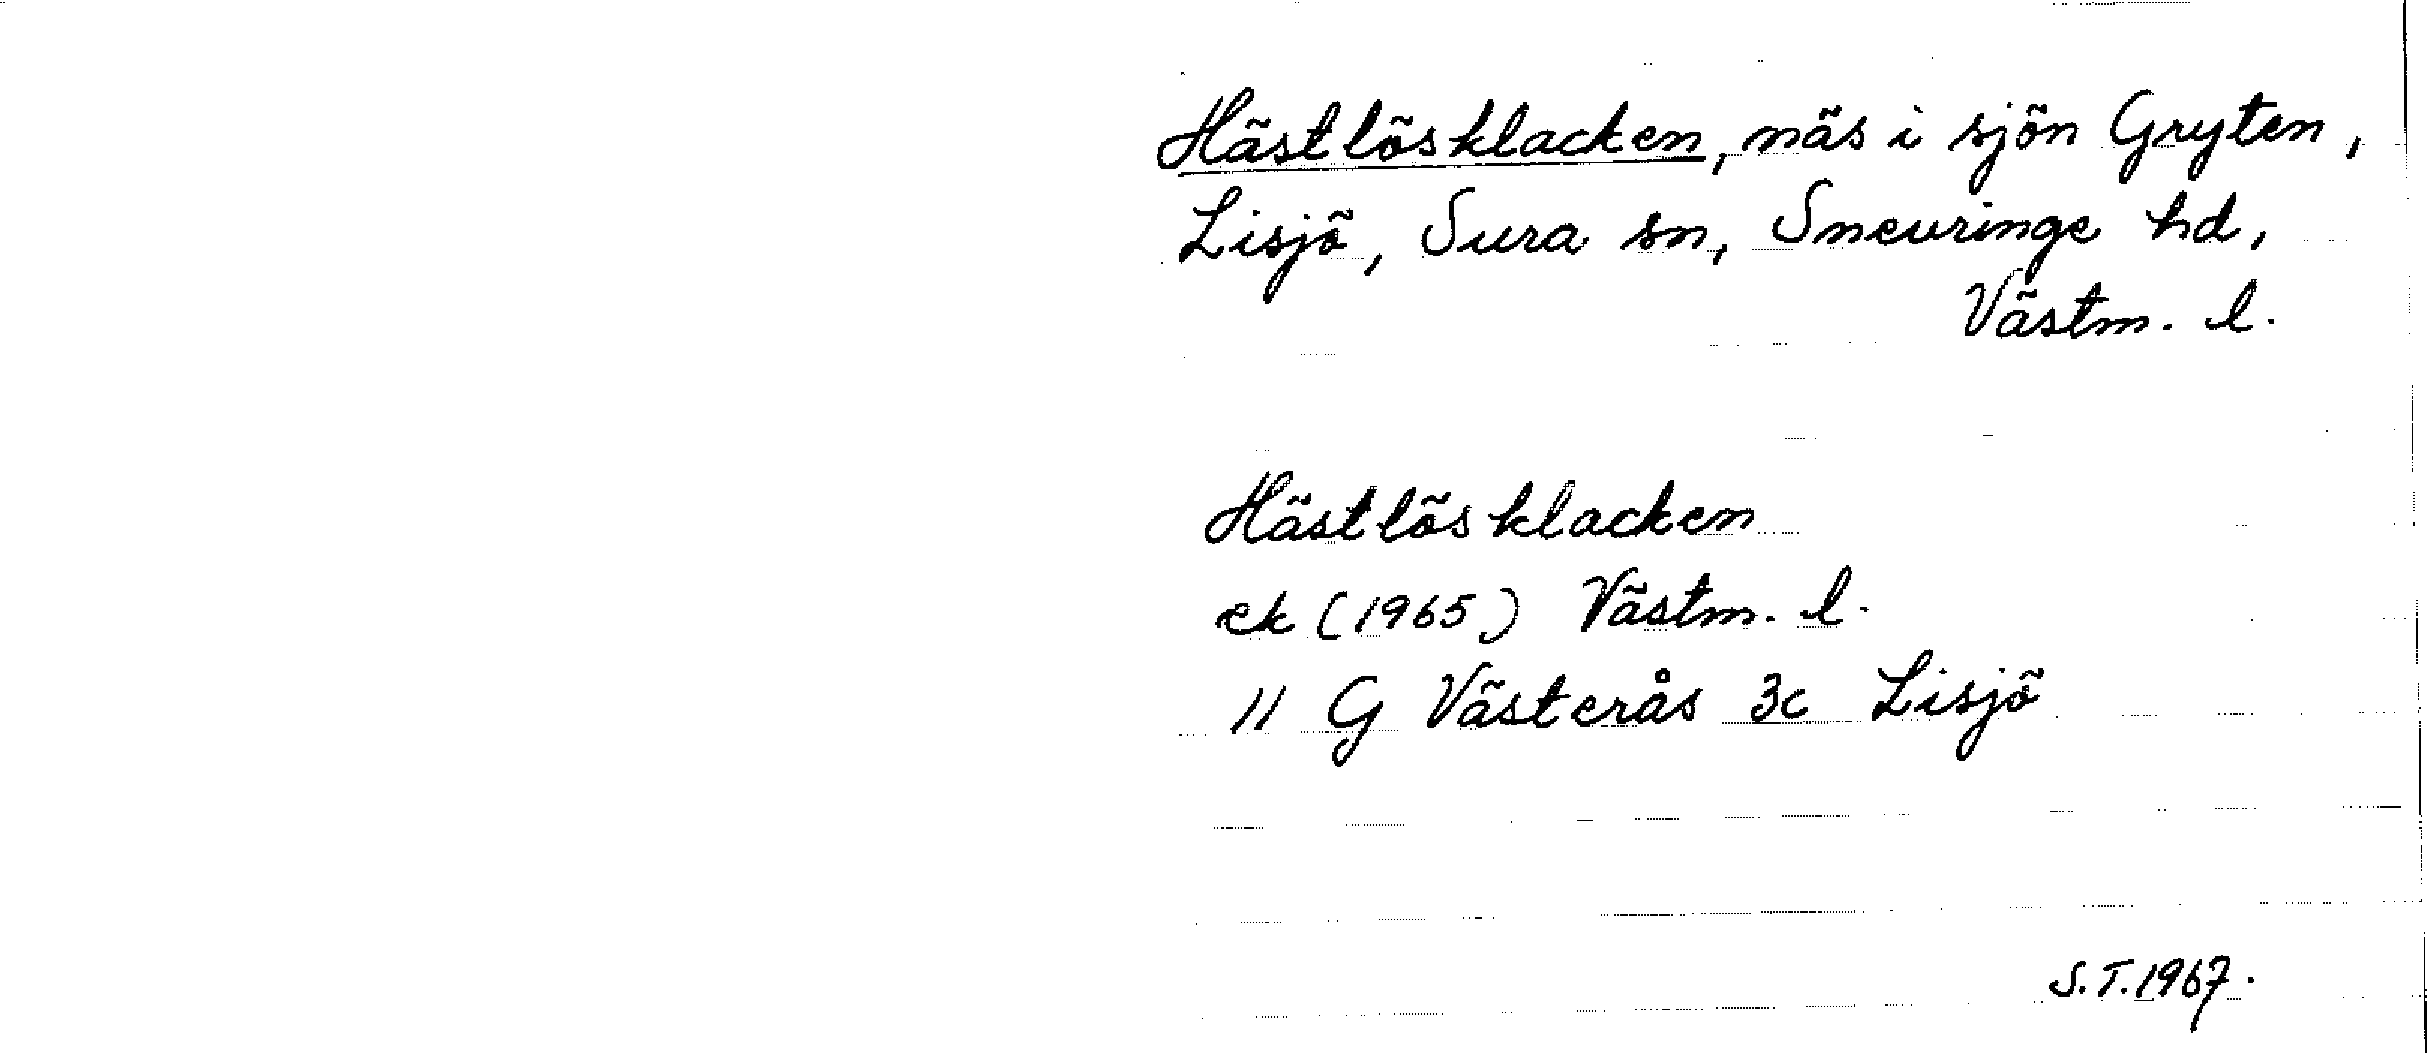 Hästlösklacken, näs i sjön Gryten,
Lisjö, Sura sn, Snevringe hd,
Västm. l.
Hästlösklacken
ek (1965) Västm. l.
11 G Västerås 3c Lisjö
S.T. 1967.